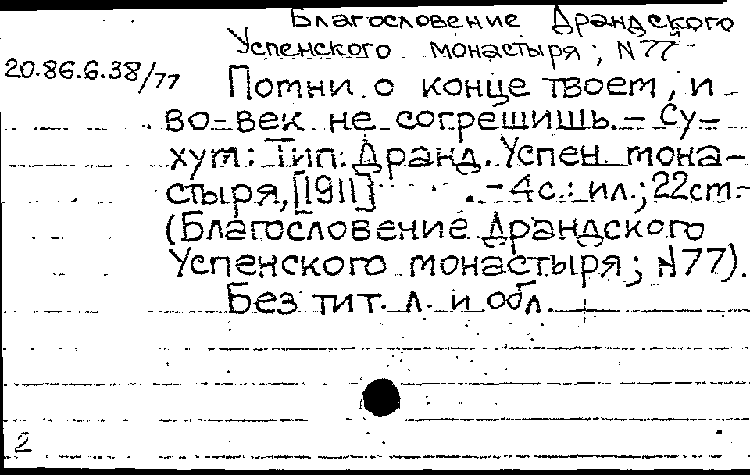 Благословение Драндского
Успенского монастыря; N 77
20.86.6.38/77
Потни о конце твоем, и
во-век не согрешишь. – Су-
хум: Тип. Дранд. Успен. мона-
стыря, [1911] . – 4 с.: ил.; 22 ст. –
(Благословение Драндского
Успенского монастыря; N 77).
Без тит. л. и обл.
2